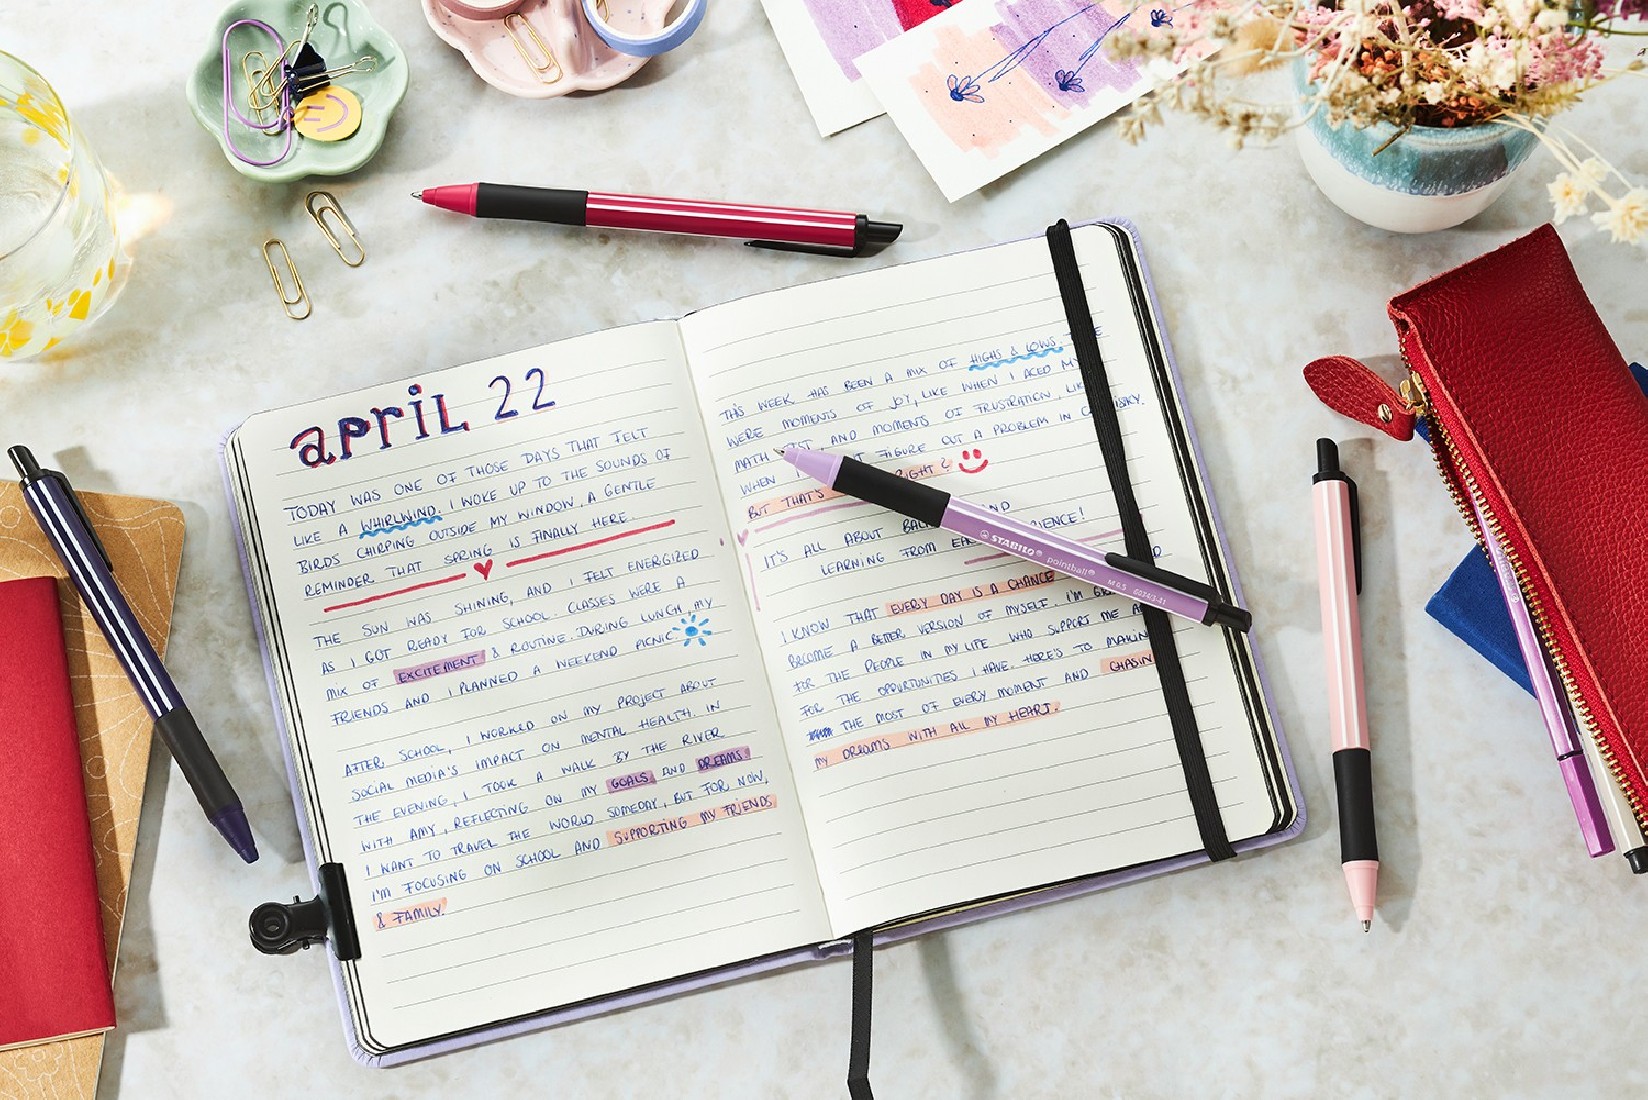 april 22
TODAY WAS ONE OF THOSE DAYS THAT FELT
LIKE A WHIRLWIND. I WOKE UP TO THE SOUNDS OF
BIRDS CHIRPING OUTSIDE MY WINDOW, A GENTLE
REMINDER THAT SPRING IS FINALLY HERE.
THE SUN WAS SHINING, AND I FELT ENERGIZED
AS I GOT READY FOR SCHOOL. CLASSES WERE A
MIX OF EXCITEMENT & ROUTINE. DURING LUNCH, MY
FRIENDS AND I PLANNED A WEEKEND PICNIC.
AFTER SCHOOL, I WORKED ON MY PROJECT ABOUT
SOCIAL MEDIA'S IMPACT ON MENTAL HEALTH. IN
THE EVENING, I TOOK A WALK BY THE RIVER
WITH AMY, REFLECTING ON MY GOALS AND DREAMS.
I WANT TO TRAVEL THE WORLD SOMEDAY, BUT FOR NOW,
I'M FOCUSING ON SCHOOL AND SUPPORTING MY FRIENDS
& FAMILY.
THIS WEEK HAS BEEN A MIX OF HIGHS & LOWS.
WERE MOMENTS OF JOY, LIKE WHEN I ACED MY
MATH AND MOMENTS OF FRUSTRATION,
WHEN FIGURE OUT A PROBLEM IN
BUT THAT'S RIGHT?
IT'S ALL ABOUT AND
LEARNING FROM
I KNOW THAT EVERY DAY IS A CHANCE
BECOME A BETTER VERSION OF MYSELF. I'M
FOR THE PEOPLE IN MY LIFE WHO SUPPORT ME
FOR THE OPPORTUNITIES I HAVE. HERE'S TO
THE MOST OF EVERY MOMENT AND
MY DREAMS WITH ALL MY HEART.
STABILO pointball